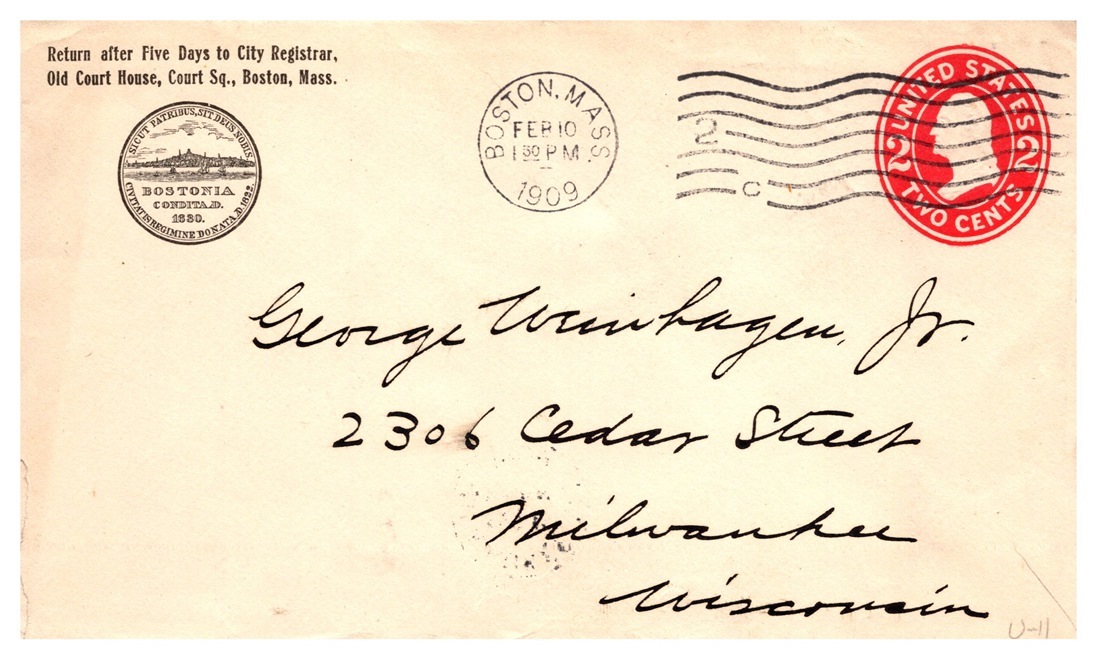 Return after Five Days to City Registrar,
Old Court House, Court Sq., Boston, Mass.
SICUT PATRIBUS, SIT DEUS NOBIS.
BOSTONIA
CONDITA.A.D.
1630.
CIVITATIS REGIMINE DONATA A.D. 1822.
BOSTON, MASS
FEB 10
1 30 PM
1909
2
C
UNITED STATES
2 2
TWO CENTS
George Weinhagen, Jr.
2306 Cedar Street
Milwaukee
Wisconsin
U-11